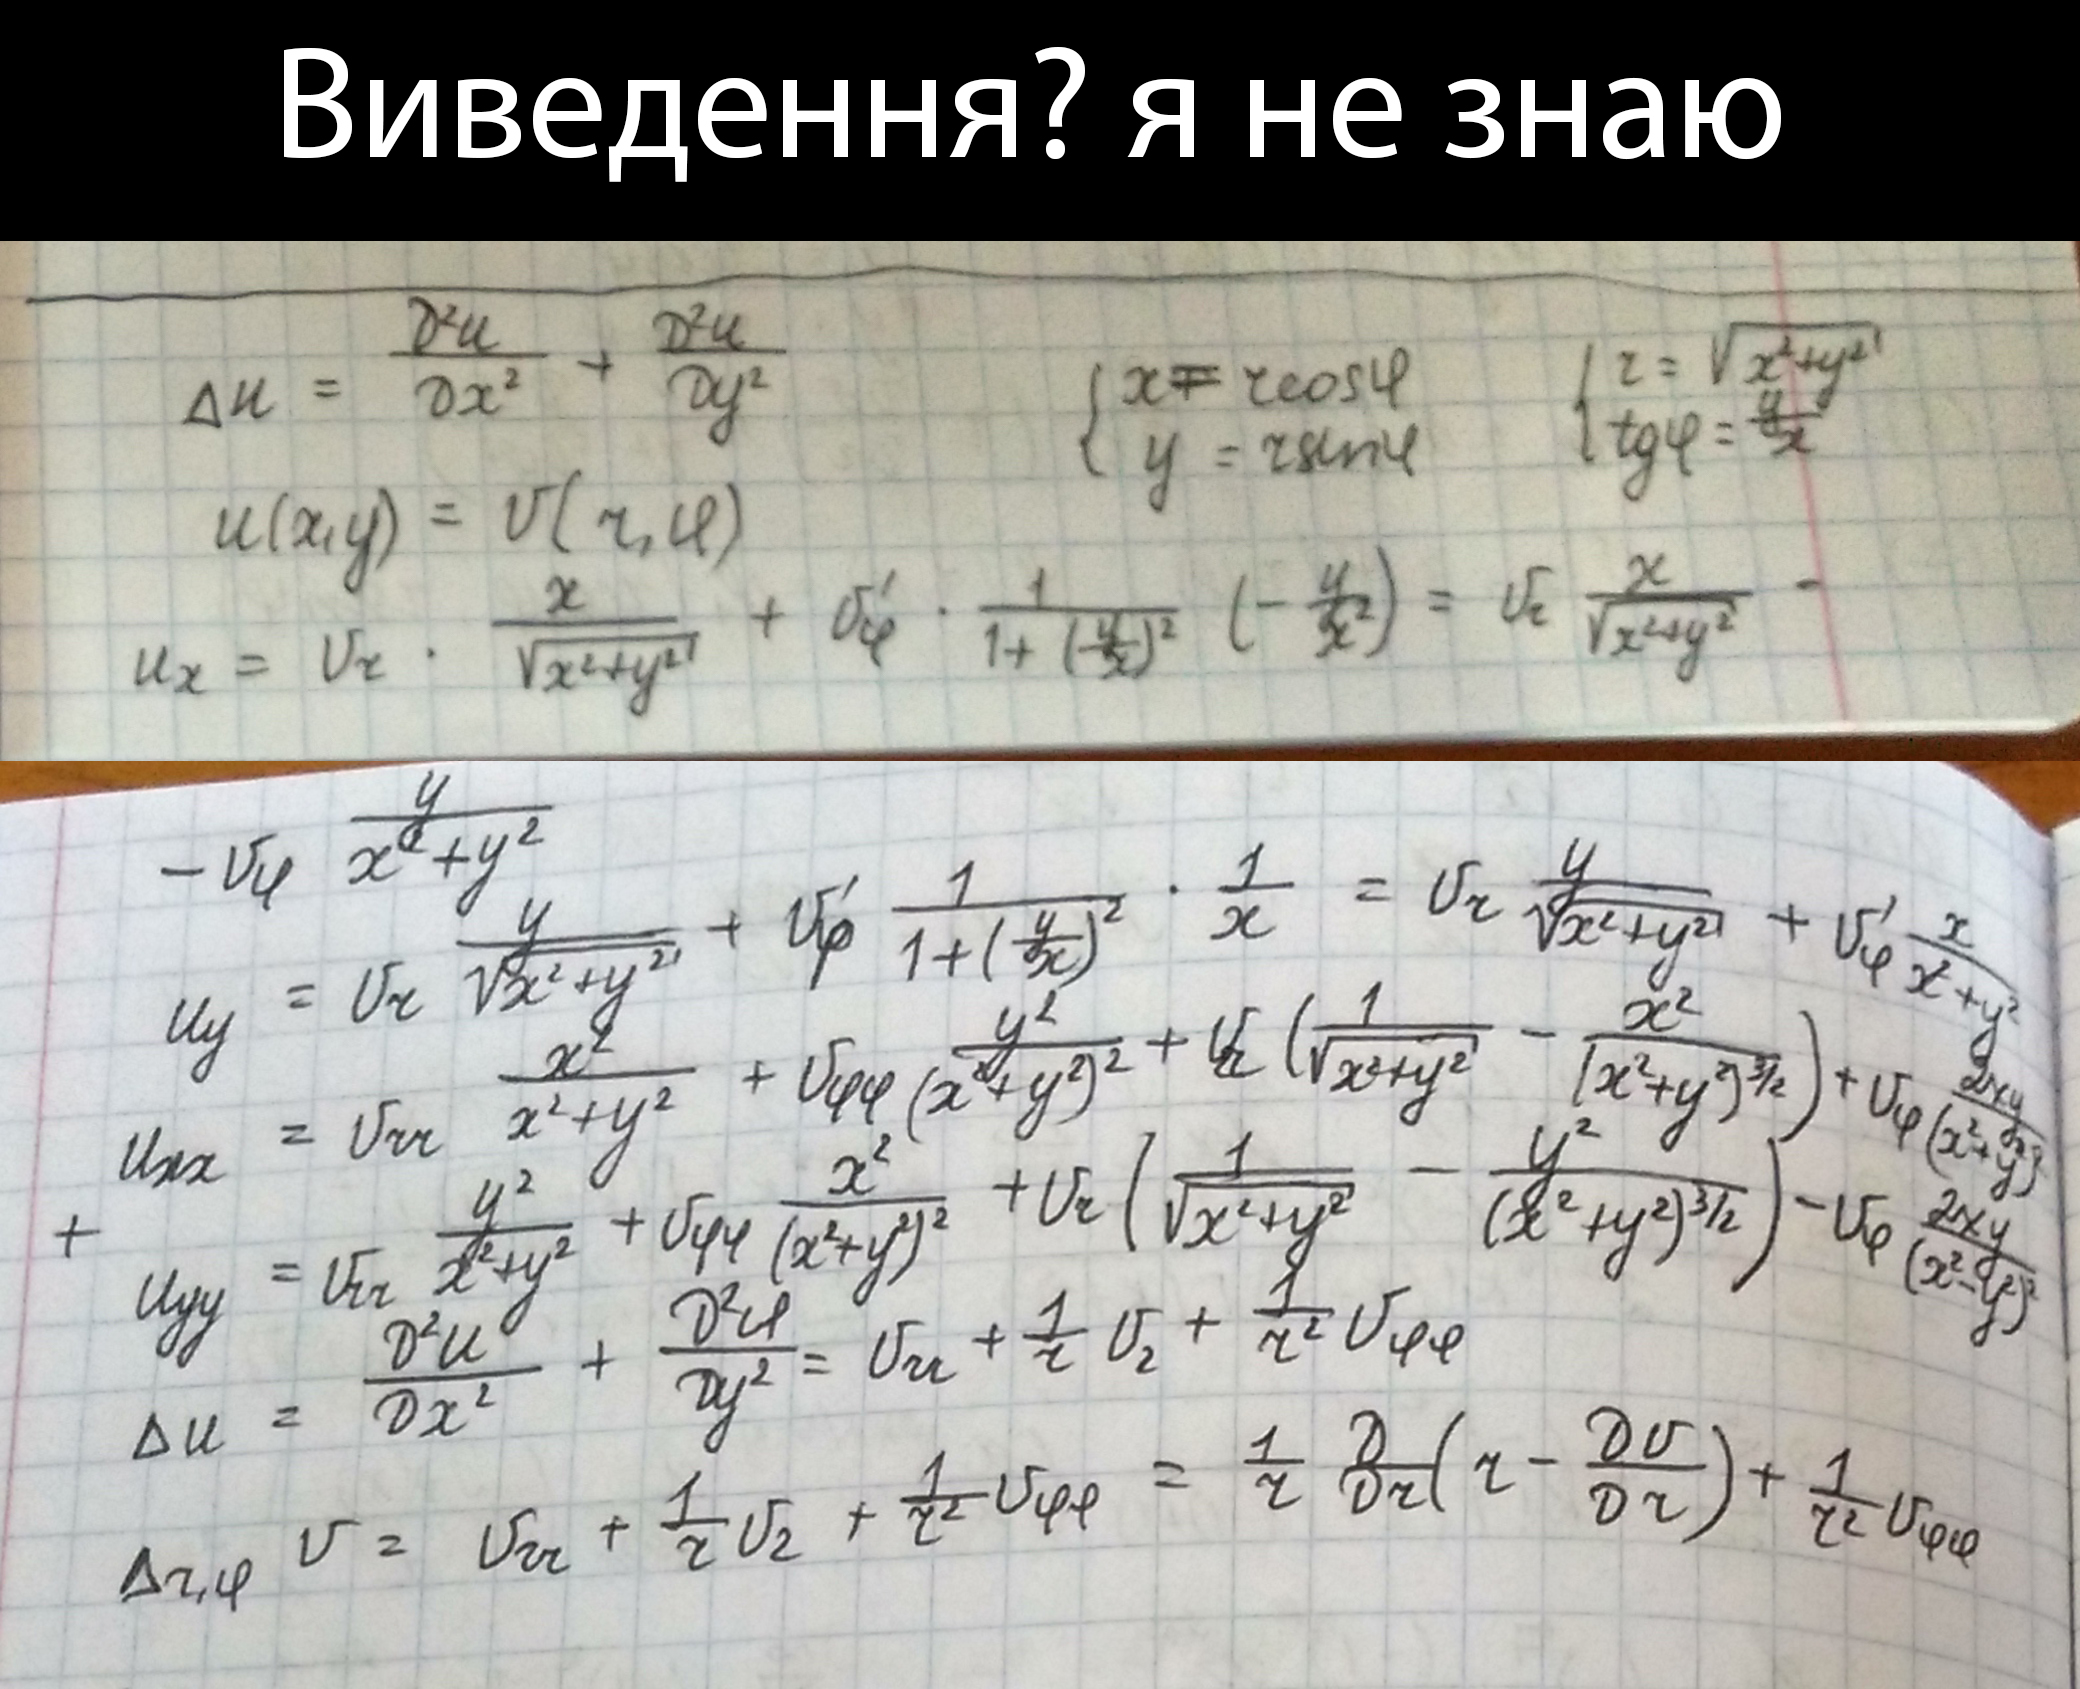 Виведення? я не знаю
Δu = ∂²u/∂x² + ∂²u/∂y² { x = r cosφ { r = √(x²+y²)
{ y = r sinφ { tgφ = y/x
u(x,y) = v(r,φ)
u_x = v_r · x/√(x²+y²) + v'_φ · 1/(1+(y/x)²) (-y/x²) = v_r x/√(x²+y²) -
- v_φ y/(x²+y²)
u_y = v_r y/√(x²+y²) + v'_φ 1/(1+(y/x)²) · 1/x = v_r y/√(x²+y²) + v'_φ x/(x²+y²)
u_xx = v_rr x²/(x²+y²) + v_φφ y²/(x²+y²)² + v_r (1/√(x²+y²) - x²/(x²+y²)^3/2) + v_φ 2xy/(x²+y²)²
+ u_yy = v_rr y²/(x²+y²) + v_φφ x²/(x²+y²)² + v_r (1/√(x²+y²) - y²/(x²+y²)^3/2) - v_φ 2xy/(x²-y²)²
Δu = ∂²u/∂x² + ∂²u/∂y² = v_rr + 1/r v_r + 1/r² v_φφ
Δ_r,φ v = v_rr + 1/r v_r + 1/r² v_φφ = 1/r ∂/∂r (r - ∂v/∂r) + 1/r² v_φφ